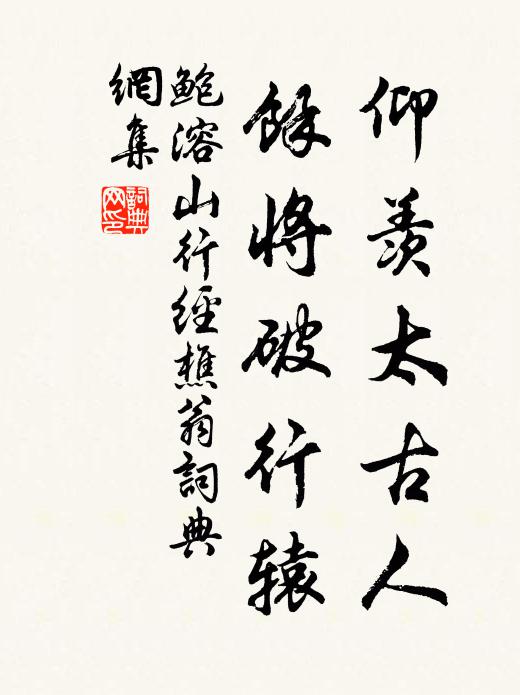 仰羨太古人
餘將破行辕
鲍溶山行經樵翁詞典
網集
詞典网印